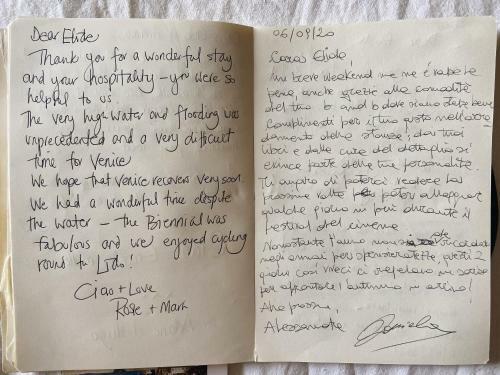 Dear Elide
Thank you for a wonderful stay
and your hospitality – you were so
helpful to us.
The very high water and flooding was
unprecedented and a very difficult
time for Venice
We hope that Venice recovers very soon.
We had a wonderful time despite
the water – the Biennial was
fabulous and we enjoyed cycling
round to Lido!
Ciao + Love
Rose + Mark
06/09/20
Cara Elide,
Un breve weekend ma ne è valsa la
pena, anche grazie alle comodità
del tuo b and b dove siamo stati bene
Complimenti per il tuo gusto nell'arre
damento delle stanze! dai tuoi
libri e dalla cura del dettaglio si
evince parte della tua personalità.
Ti auguro di poterci rivedere la
prossima volta per poter allungare
qualche giorno in più durante il
festival del cinema
Nonostante l'anno
negli annali per spensieratezza, questi 2
giorni così vivaci ci
per affrontare l'autunno in arrivo!
Alla prossima,
Alessandra